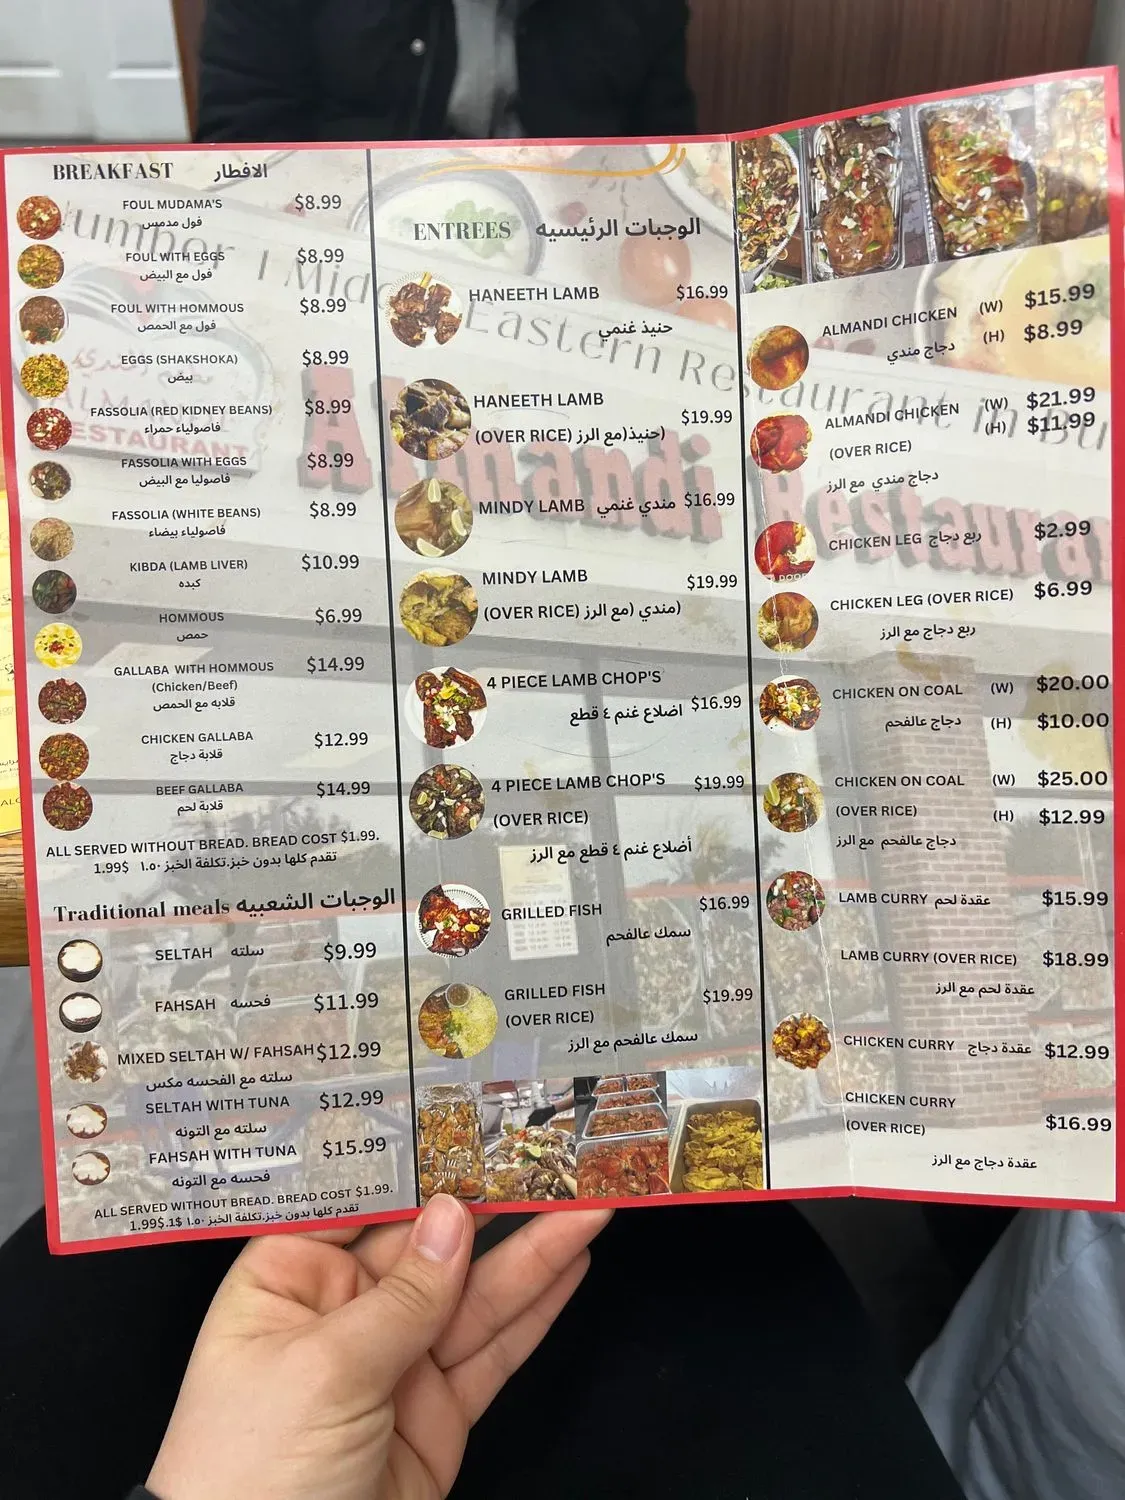 BREAKFAST الافطار
FOUL MUDAMA'S $8.99
فول مدمس
FOUL WITH EGGS $8.99
فول مع البيض
FOUL WITH HOMMOUS $8.99
فول مع الحمص
EGGS (SHAKSHOKA) $8.99
بيض
FASSOLIA (RED KIDNEY BEANS) $8.99
فاصولياء حمراء
FASSOLIA WITH EGGS $8.99
فاصوليا مع البيض
FASSOLIA (WHITE BEANS) $8.99
فاصولياء بيضاء
KIBDA (LAMB LIVER) $10.99
كبده
HOMMOUS $6.99
حمص
GALLABA WITH HOMMOUS $14.99
(Chicken/Beef)
قلابه مع الحمص
CHICKEN GALLABA $12.99
قلابة دجاج
BEEF GALLABA $14.99
قلابة لحم
ALL SERVED WITHOUT BREAD. BREAD COST $1.99.
تقدم كلها بدون خبز.تكلفة الخبز ١.٥٠ $1.99
Traditional meals الوجبات الشعبيه
SELTAH سلته $9.99
FAHSAH فحسه $11.99
MIXED SELTAH W/ FAHSAH $12.99
سلته مع الفحسه مكس
SELTAH WITH TUNA $12.99
سلته مع التونه
FAHSAH WITH TUNA $15.99
فحسه مع التونه
ALL SERVED WITHOUT BREAD. BREAD COST $1.99.
تقدم كلها بدون خبز.تكلفة الخبز ١.٥٠ $1.99.1$
ENTREES الوجبات الرئيسيه
HANEETH LAMB $16.99
حنيذ غنمي
HANEETH LAMB $19.99
(OVER RICE) حنيذ)مع الرز)
MINDY LAMB مندي غنمي $16.99
MINDY LAMB $19.99
(OVER RICE) مندي )مع الرز)
4 PIECE LAMB CHOP'S $16.99
اضلاع غنم ٤ قطع
4 PIECE LAMB CHOP'S $19.99
(OVER RICE)
أضلاع غنم ٤ قطع مع الرز
GRILLED FISH $16.99
سمك عالفحم
GRILLED FISH $19.99
(OVER RICE)
سمك عالفحم مع الرز
ALMANDI CHICKEN (W) $15.99
دجاج مندي (H) $8.99
ALMANDI CHICKEN (W) $21.99
(H) $11.99
(OVER RICE)
دجاج مندي مع الرز
CHICKEN LEG ربع دجاج $2.99
CHICKEN LEG (OVER RICE) $6.99
ربع دجاج مع الرز
CHICKEN ON COAL (W) $20.00
دجاج عالفحم (H) $10.00
CHICKEN ON COAL (W) $25.00
(OVER RICE) (H) $12.99
دجاج عالفحم مع الرز
LAMB CURRY عقدة لحم $15.99
LAMB CURRY (OVER RICE) $18.99
عقدة لحم مع الرز
CHICKEN CURRY عقدة دجاج $12.99
CHICKEN CURRY
(OVER RICE) $16.99
عقدة دجاج مع الرز
Number 1 Middle Eastern Restaurant in Bu
Almandi Restaurant
ALMANDI
RESTAURANT